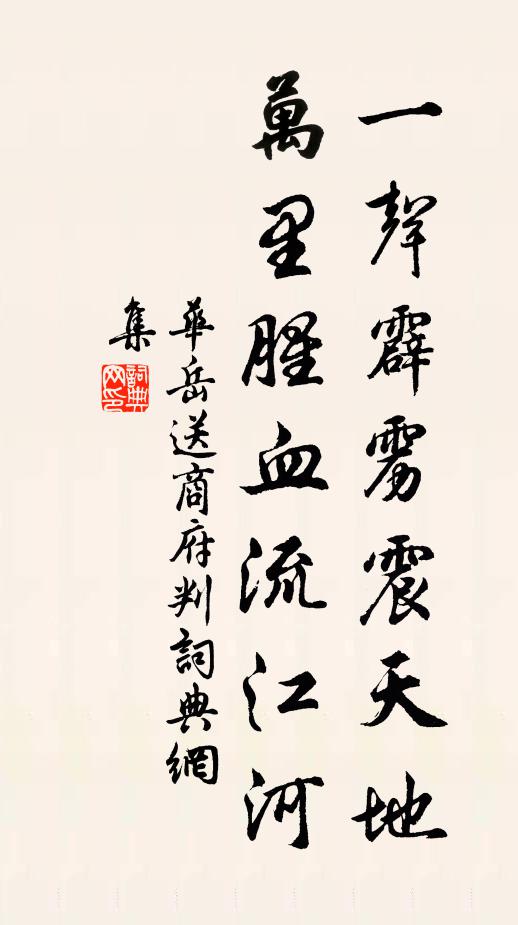 一聲霹雳震天地
萬里腥血流江河
華岳送商府判詞典網
集
詞典
网印